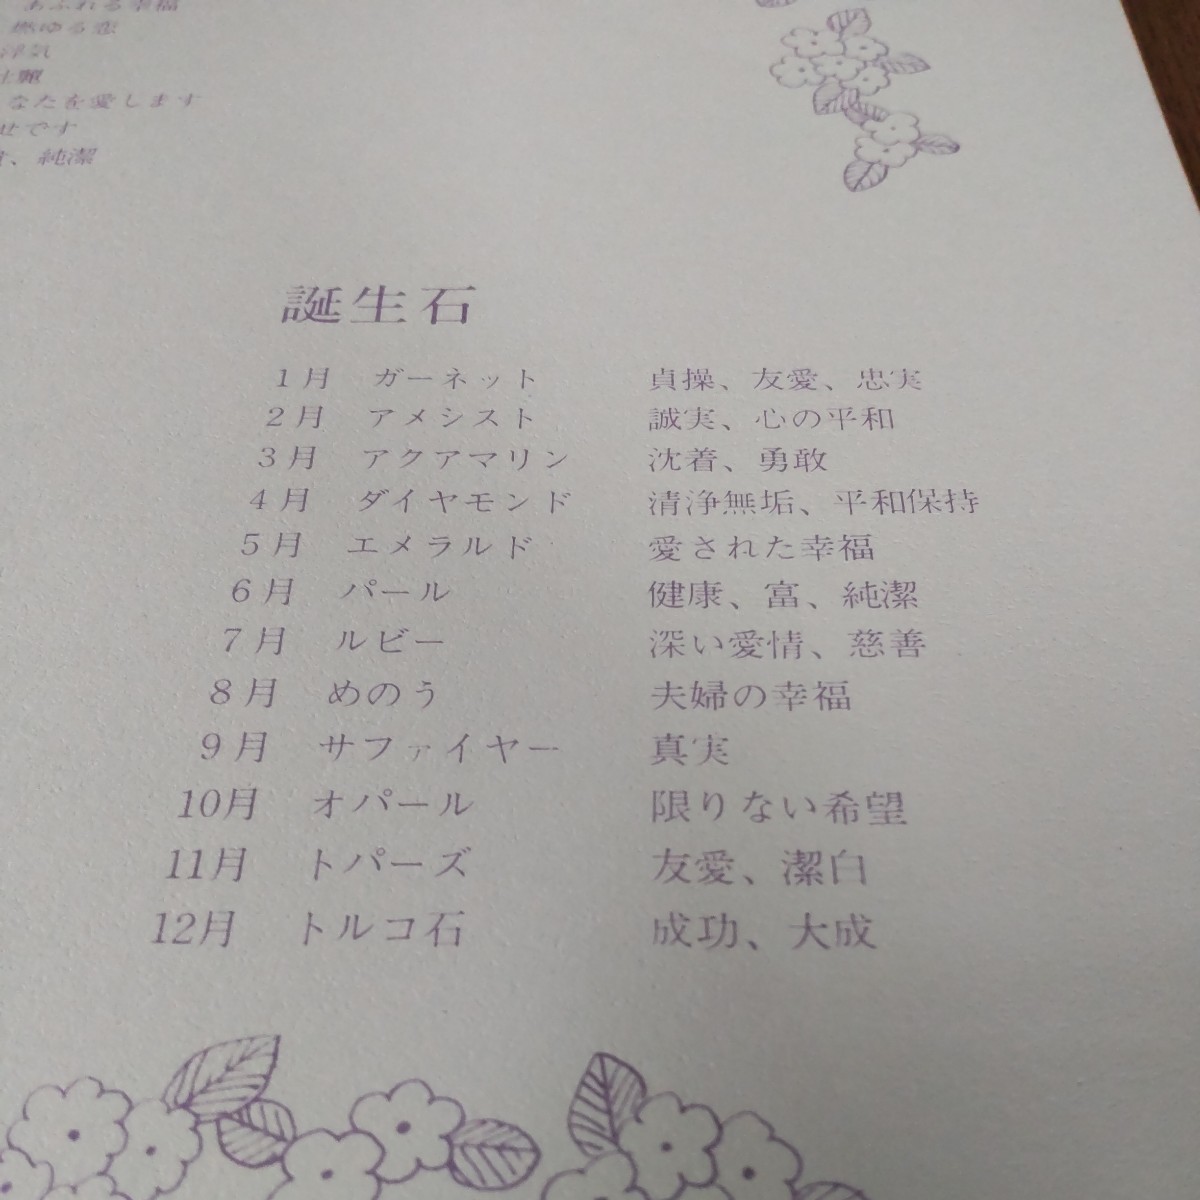 あふれる幸福
燃ゆる恋
浮気
なたを愛します
せです
、純潔
誕生石
1月 ガーネット 貞操、友愛、忠実
2月 アメシスト 誠実、心の平和
3月 アクアマリン 沈着、勇敢
4月 ダイヤモンド 清浄無垢、平和保持
5月 エメラルド 愛された幸福
6月 パール 健康、富、純潔
7月 ルビー 深い愛情、慈善
8月 めのう 夫婦の幸福
9月 サファイヤー 真実
10月 オパール 限りない希望
11月 トパーズ 友愛、潔白
12月 トルコ石 成功、大成